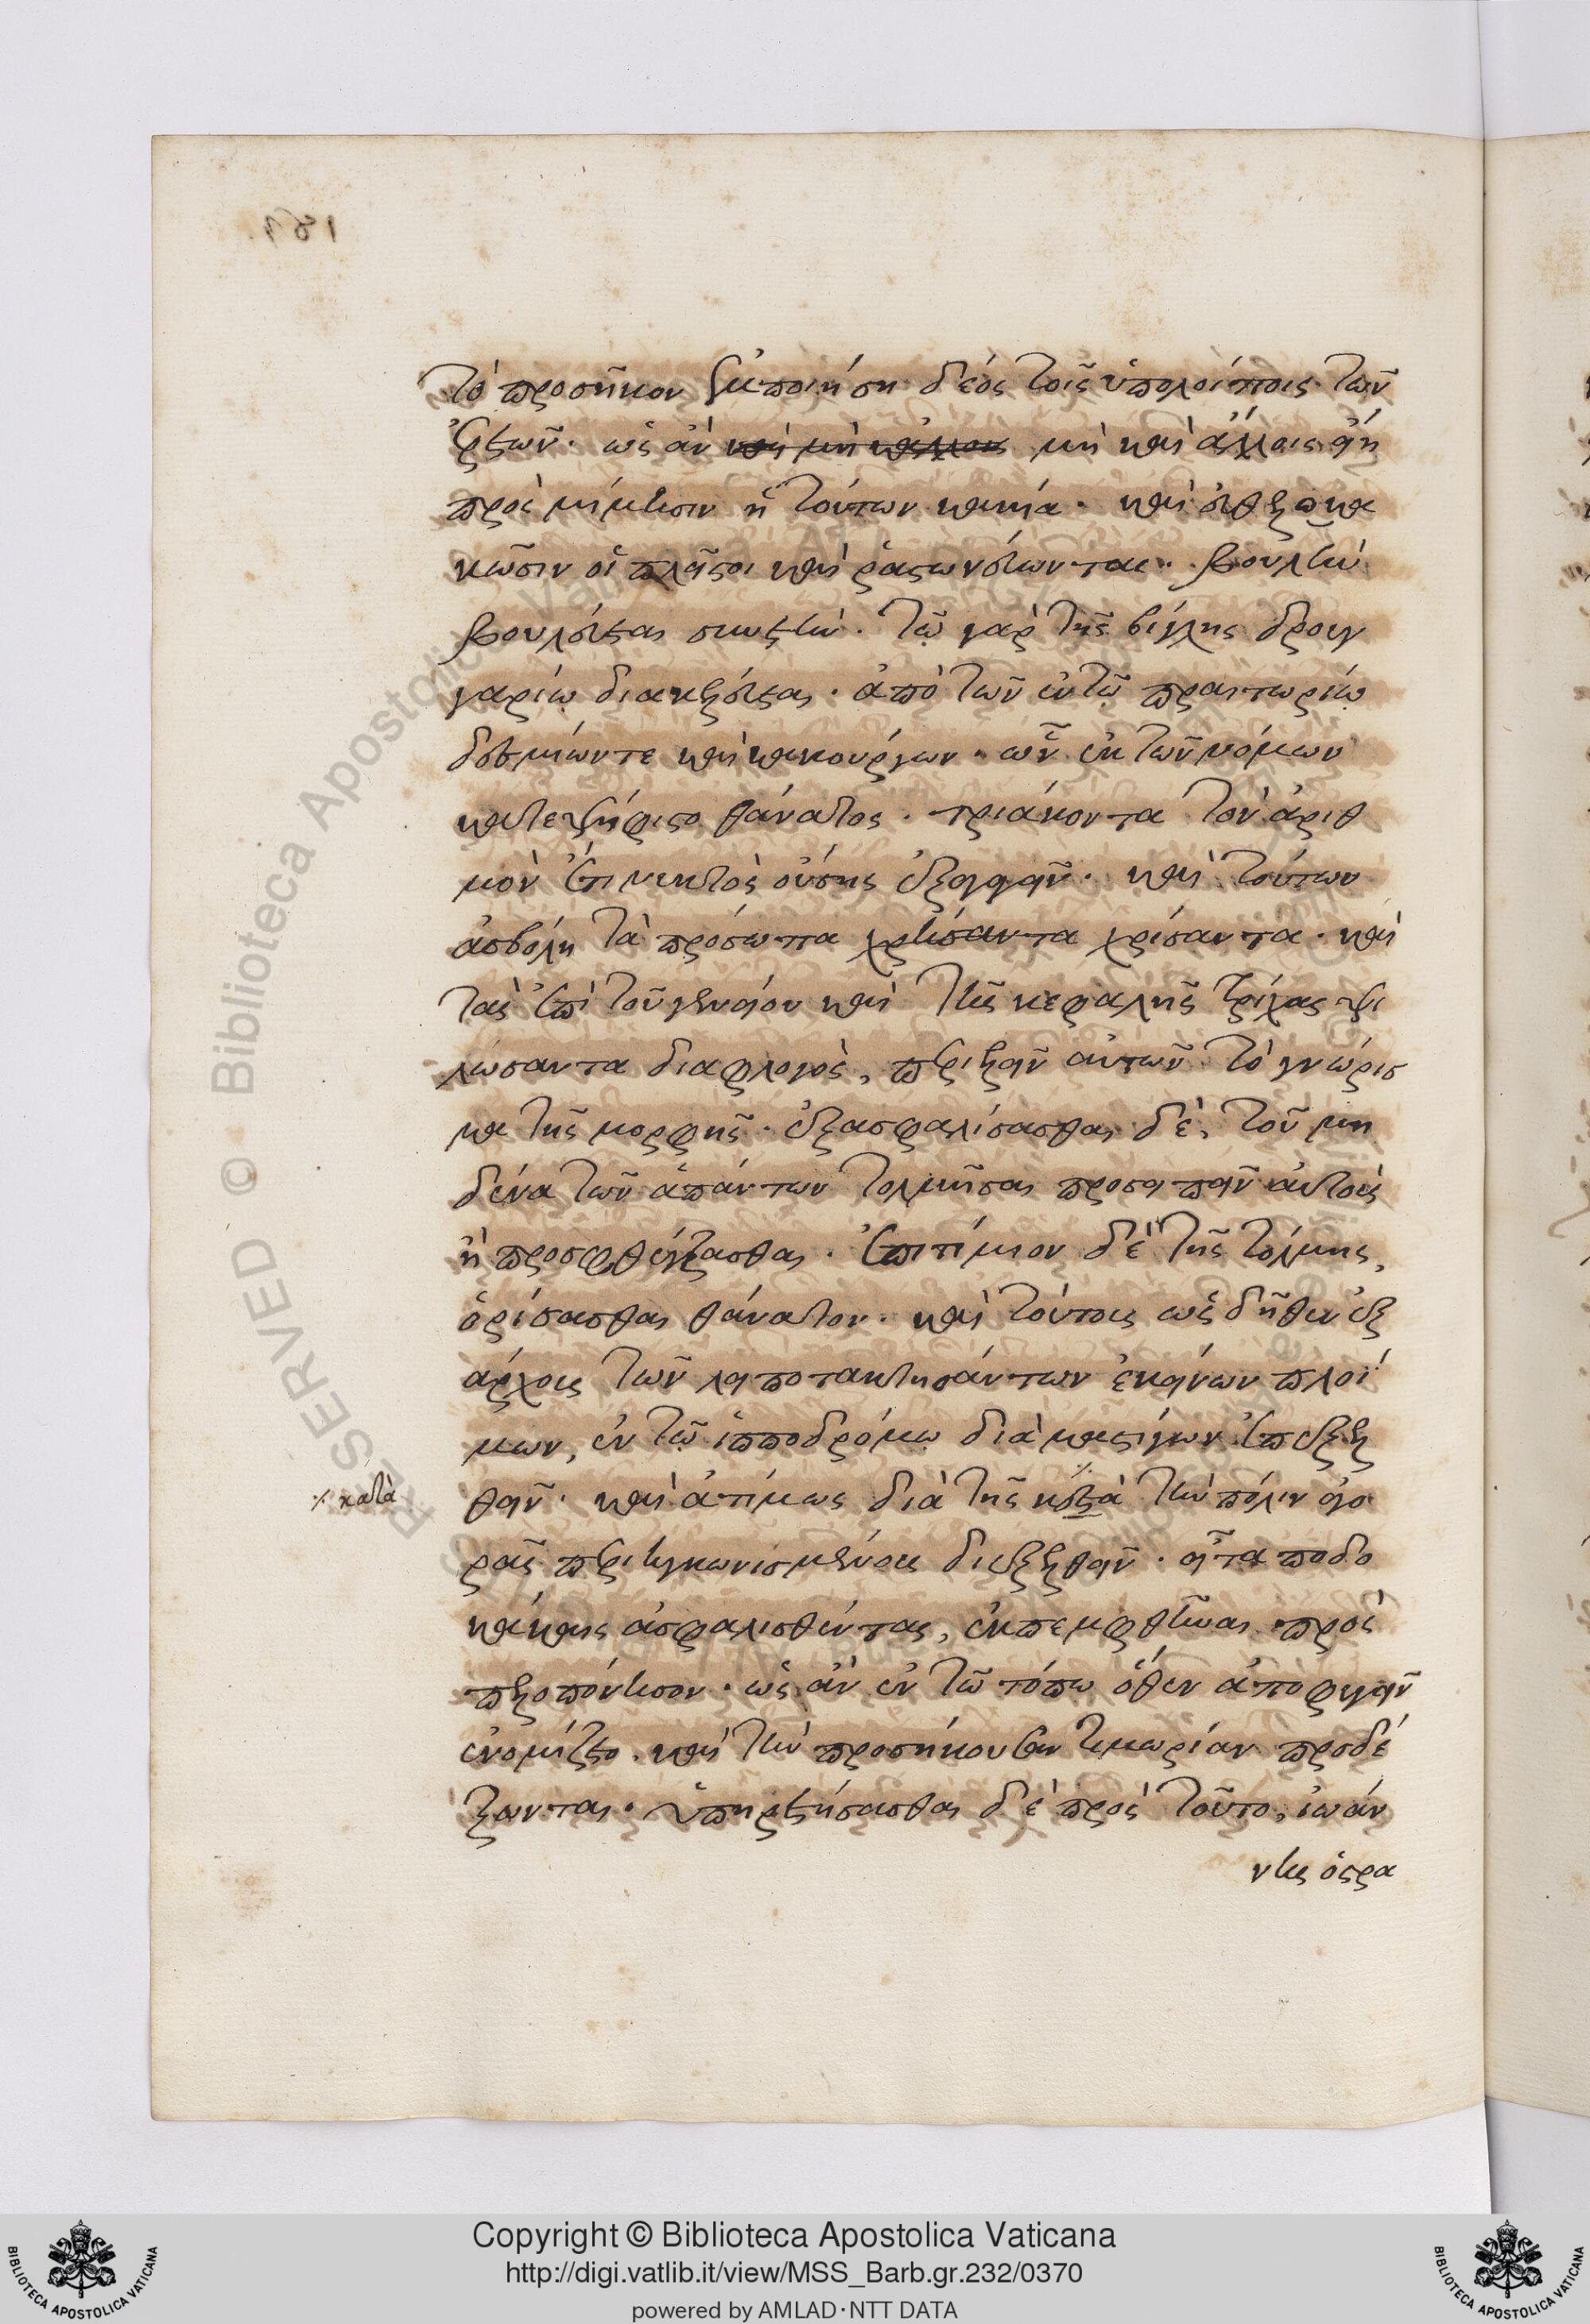 τὸ προσῆκον ἐμποιήσῃ δέος τοῖς ὑπολοίποις τῶν
ἐρετῶν. ὡς ἂν μὴ καὶ ἄλλοις εἴη
πρὸς μίμησιν ἡ τούτων κακία. καὶ
κῶσιν οἱ πλεῖστοι καὶ ῥᾳστωνεύωνται. βουλὴν
βουλεύεται συνετήν. τῷ γὰρ τῆς βίγλης δρουγ
γαρίῳ διακελεύεται. ἀπὸ τῶν ἐν τῷ πραιτωρίῳ
δεσμίων τε καὶ κακούργων. ὧν ἐκ τῶν νόμων
κατεψήφιστο θάνατος. τριάκοντα τὸν ἀριθ
μὸν ἔτι νυκτὸς οὔσης ἐξαγαγεῖν. καὶ τούτων
ἀσβόλῃ τὰ πρόσωπα χρήσαντα χρίσαντα. καὶ
τὰς ἐπὶ τοῦ γενείου καὶ τῆς κεφαλῆς τρίχας ψι
λώσαντα διαφλογὸς, περιελεῖν αὐτῶν τὸ γνώρισ
μα τῆς μορφῆς. ἐξασφαλίσασθαι δὲ, τοῦ μη
δένα τῶν ἁπάντων τολμῆσαι προσειπεῖν αὐτοῖς
ἢ προσφθέγξασθαι. ἐπιτίμιον δὲ τῆς τόλμης,
ὁρίσασθαι θάνατον. καὶ τούτοις ὡς δῆθεν ἐξ
άρχοις τῶν λειποτακτησάντων ἐκείνων πλοΐ
μων, ἐν τῷ ἱπποδρόμῳ διὰ μαστίγων ἐπεξελ
θεῖν. καὶ ἀτίμως διὰ τῆς μετὰ τὴν πόλιν ἀγο
⁒ κατὰ
ρᾶς περιηγκωνισμένους διεξελθεῖν. εἶτα ποδο
κάκαις ἀσφαλισθέντας, ἐκπεμφθῆναι πρὸς
πελοπόννησον. ὡς ἂν ἐν τῷ τόπῳ ὅθεν ἀποφυγεῖν
ἐνομίζετο. καὶ τὴν προσήκουσαν τιμωρίαν προσδέ
ξωνται. ὑπηρετήσασθαι δὲ πρὸς τοῦτο, ἰωάν
νης ὁστρα
Copyright © Biblioteca Apostolica Vaticana
http://digi.vatlib.it/view/MSS_Barb.gr.232/0370
powered by AMLAD·NTT DATA
BIBLIOTECA APOSTOLICA VATICANA
BIBLIOTECA APOSTOLICA VATICANA